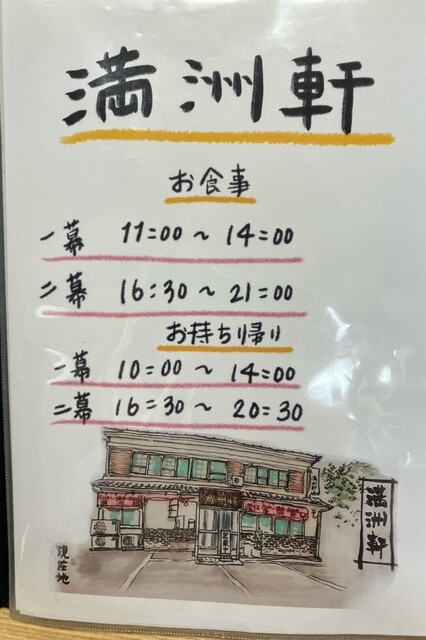 満洲軒
お食事
一幕 11:00 〜 14:00
二幕 16:30 〜 21:00
お持ち帰り
一幕 10:00 〜 14:00
二幕 16:30 〜 20:30
満洲軒
現在地